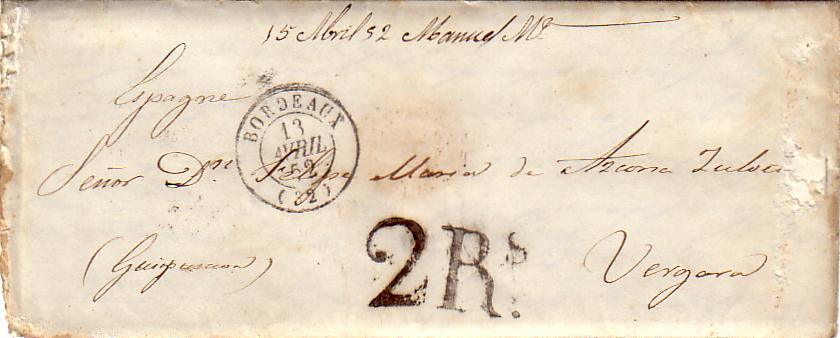 15 Abril 52 Manuel Ma.
Espagne
BORDEAUX
13
AVRIL
52
(32)
Señor Dn Felipe Maria de Azcona
(Guipuzcoa) Vergara
2Rs.